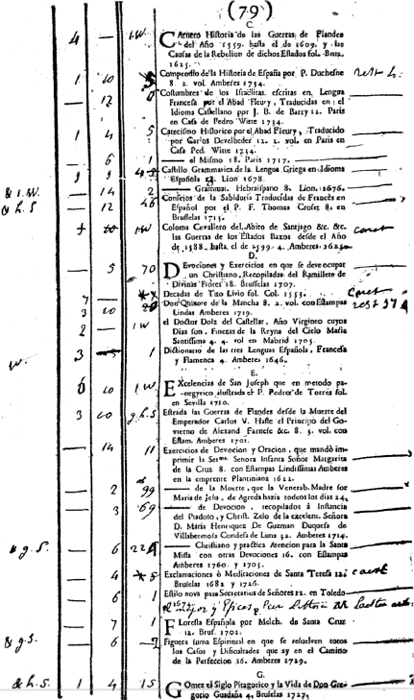 (79)
C.
4 — 1.W CArnero Historia de las Guerras de Flandes
del Año 1559. hasta el de 1609. y las
Causas de la Rebelion de dichos Estados fol. Brux.
1625.
1 10 Compendio de la Historia de España por P. Duchesne
8. 2. vol. Amberes 1754.
— 12 Costumbres de los Israëlitas, escritas en Lengua
Francesa por el Abad Fleury, Traducidas en el
Idioma Castellano por J. B. de Barry 12. Paris
en Casa de Pedro Witte 1734.
1 4 5 Catecismo Historico por el Abad Fleury, Traducido
por Carlos Develbeder 12. 2. vol. en Paris en
Casa Ped. Witte 1734.
— 6 1 — el Mismo 18. Paris 1717.
Castillo Grammatica de la Lengua Griega en Idioma
Española Lion 1678.
& 1.W. — 14 2 — Grammat. Hebraispano 8. Lion. 1676.
& h.S — 12 Consejos de la Sabiduria Traducidas de Francés en
Español por el P. F. Thomas Croset 8. en
Bruselas 1715.
Coloma Cavallero del Abito de Santjago &c. &c.
las Guerras de los Estados Baxos desde el Año
de 1588. hasta el de 1599. 4. Amberes
D.
— 5 70 DEvociones y Exercicios en que se deve ocupar
un Christiano, Recopiladas del Ramillete de
Divinas Flores 18. Bruselas 1707.
7 — Decadas de Tito Livio fol. Col. 1553.
3 10 Don Quixote de la Mancha 8. 2. vol. con Estampas
Lindas Amberes 1719.
2 — 1W el Doctor Dolz del Castellar, Año Virgineo cuyos
Dias son, Finezas de la Reyna del Cielo Maria
Santissima 4. 4. vol en Madrid 1705.
W. 3 1 Dictionario de las tres Lenguas Española, Francesa
y Flamenca 4. Amberes 1646.
E.
6 10 1.W. EXcelencias de San Joseph que en metodo pa-
negyrico ilustrada el P. Pedro de Torres fol.
en Sevilla 1710.
3 10 g.h.S Estrada las Guerras de Flandes desde la Muerte del
Emperador Carlos V. Haste el Principo del Go-
vierno de Alexand Farnese &c. 8. 3. vol. con
Estam. Amberes 1701.
— 14 11 Exercicios de Devocion y Oracion, que mandó im-
primir la Serma Senora Infanta Soñor Margarita
de la Cruz 8. con Estampas Lindissimas Amberes
en la emprente Plantiniana 1622.
— 2 99 — de la Muerte, que la Venerab. Madre sor
Maria de Jesu, de Agreda hazia todos los dias 24.
— 3 69 — de Devocion, recopilados à Instancia
del Piadoso, y Christ. Zelo de la excelent. Señora
D. Maria Henriquez De Guzman Duquesa de
Villahermosa Condesa de Luna 32. Amberes 1714.
& g.S. — 6 — Christiano y practica Atencion para la Santa
Missa con otras Devociones 16. con Estampas
Amberes 1760. y 1705.
— 4 Exclamaciones ò Meditaciones de Santa Teresa 12.
Bruselas 1682 y 1726.
— 6 1 Estilo nova para Secretarios de Señores 12. en Toledo
7 — 1 FLoresta Española por Melch. de Santa Cruz
12. Brus. 1702.
& g.S. — 6 Figuera suma Espiritual en que se resuelven todos
los Casos y Dificultades que ay en el Camino
de la Perfeccion 16. Amberes 1729.
G.
& h.S. 1 4 15 GOmez el Siglo Pitagorico y la Vida de Don Gre-
gorio Guadaña 4. Bruselas 1727.